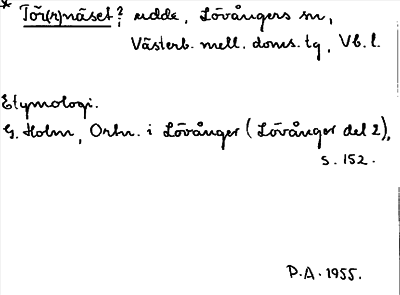 * Tör(r)näset? udde, Lövångers sn,
Västerb. mell. doms. tg, Vb. l.
Etymologi.
G. Holm, Ortn. i Lövånger (Lövånger del 2),
s. 152.
P.A. 1955.